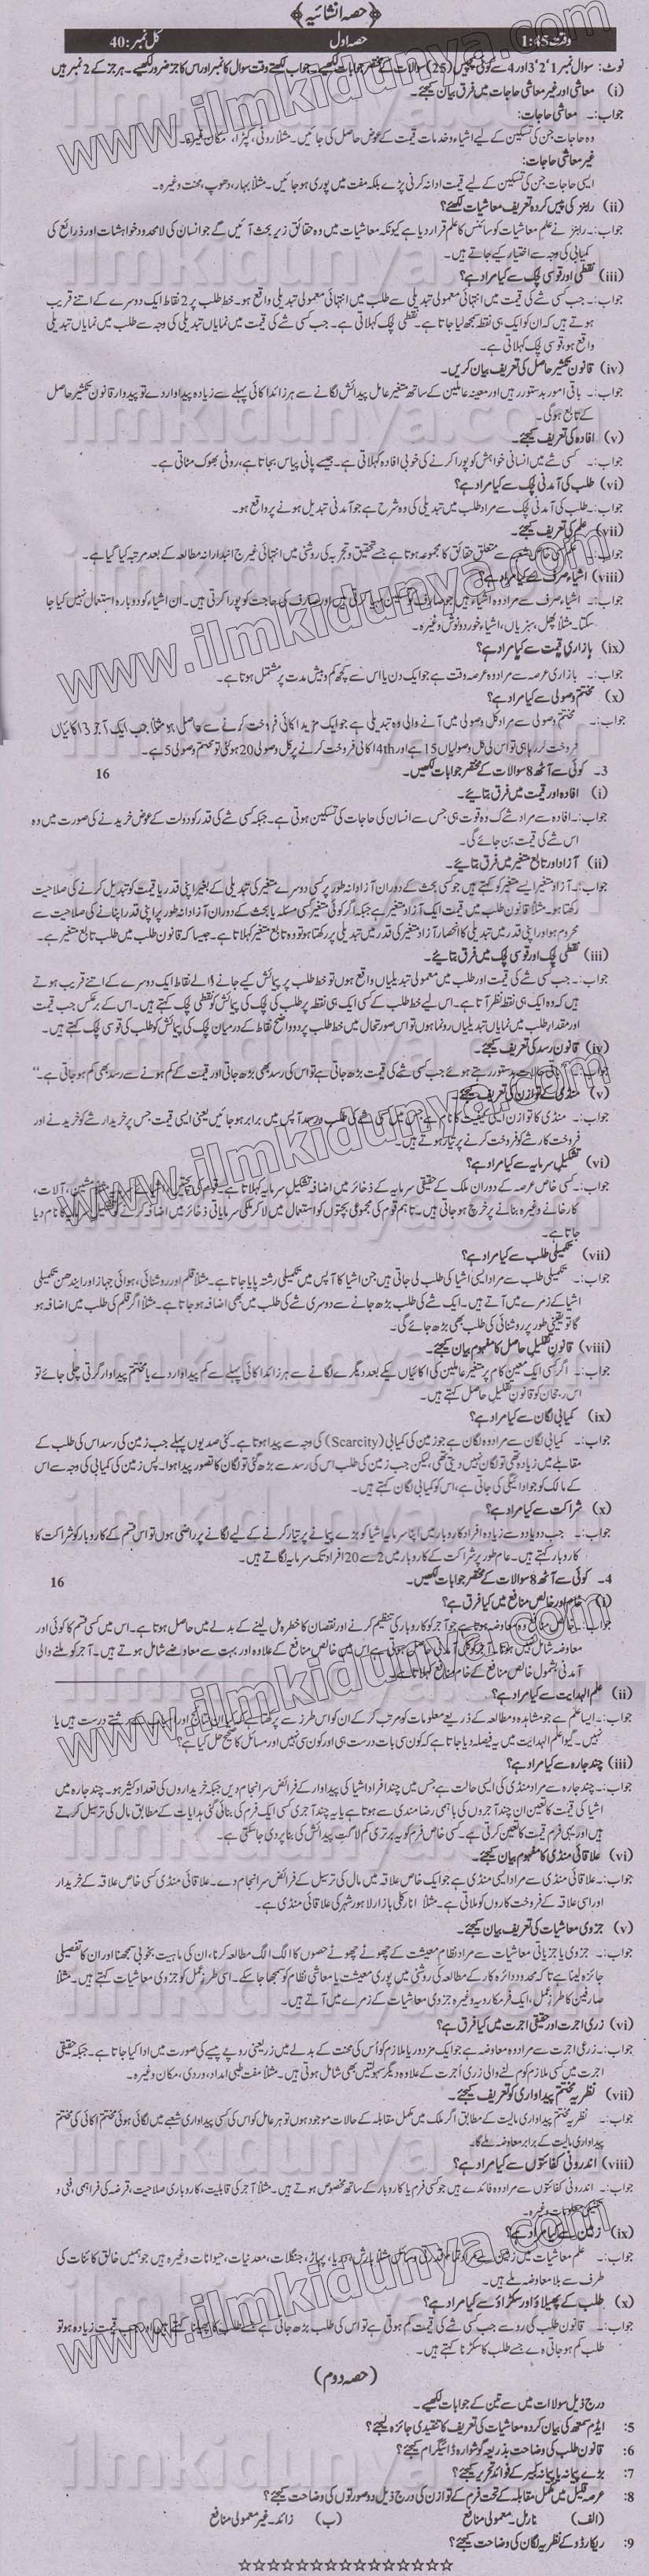 ﴿حصہ انشائیہ﴾
وقت 1:45 حصہ اول کل نمبر: 40
نوٹ: سوال نمبر 1'2'3 اور 4 سے کوئی پچیس (25) سوالات کے مختصر جوابات لکھیے۔ جواب لکھتے وقت سوال کا نمبر اور اس کا جز ضرور لکھیے۔ ہر جز کے 2 نمبر ہیں
(i) معاشی اور غیر معاشی حاجات میں فرق بیان کیجئے۔
جواب:۔ معاشی حاجات:
وہ حاجات جن کی تسکین کے لیے اشیاء و خدمات قیمت کے عوض حاصل کی جائیں۔ مثلاً روٹی، کپڑا، مکان وغیرہ۔
غیر معاشی حاجات:
ایسی حاجات جن کی تسکین کے لیے قیمت ادا نہ کرنی پڑے بلکہ مفت میں پوری ہو جائیں۔ مثلاً بہار، دھوپ، محنت وغیرہ۔
(ii) رابنز کی پیش کردہ تعریف معاشیات لکھئے؟
جواب:۔ رابنز نے علم معاشیات کو سائنس کا علم قرار دیا ہے کیونکہ معاشیات میں وہ حقائق زیر بحث آئیں گے جو انسان کی لامحدود خواہشات اور ذرائع کی
کمیابی کی وجہ سے اختیار کیے جاتے ہیں۔
(iii) نقطی اور قوسی لچک سے کیا مراد ہے؟
جواب:۔ جب کسی شے کی قیمت میں انتہائی معمولی تبدیلی سے طلب میں انتہائی معمولی تبدیلی واقع ہو۔ خط طلب پر 2 نقاط ایک دوسرے کے اتنے قریب
ہوتے ہیں کہ ان کو ایک ہی نقطہ سمجھ لیا جاتا ہے۔ نقطی لچک کہلاتی ہے۔ جب کسی شے کی قیمت میں نمایاں تبدیلی کی وجہ سے طلب میں نمایاں تبدیلی
واقع ہو، قوسی لچک کہلاتی ہے۔
(iv) قانون تکثیر حاصل کی تعریف بیان کریں۔
جواب:۔ باقی امور بدستور رہیں اور معینہ عاملین کے ساتھ متغیر عامل پیدائش لگانے سے ہر زائد اکائی پہلے سے زیادہ پیداوار دے تو پیداوار قانون تکثیر حاصل
کے تابع ہوگی۔
(v) افادہ کی تعریف کیجئے۔
جواب:۔ کسی شے میں انسانی خواہش کو پورا کرنے کی خوبی افادہ کہلاتی ہے۔ جیسے پانی پیاس بجھاتا ہے، روٹی بھوک مٹاتی ہے۔
(vi) طلب کی آمدنی لچک سے کیا مراد ہے؟
جواب:۔ طلب کی آمدنی لچک سے مراد طلب میں تبدیلی کی وہ شرح ہے جو آمدنی تبدیل ہونے پر واقع ہو۔
(vii) علم کی تعریف کیجئے۔
جواب:۔ علم کسی خاص سے متعلق حقائق کا مجموعہ ہوتا ہے جسے تحقیق و تجربہ کی روشنی میں انتہائی غیر جانبدارانہ مطالعہ کے بعد مرتب کیا گیا ہے۔
(viii) اشیاء صرف سے کیا مراد ہے؟
جواب:۔ اشیاء صرف سے مراد وہ اشیاء ہیں جو صارف کی حاجت کو پورا کرتی ہیں۔ ان اشیاء کو دوبارہ استعمال نہیں کیا جا
سکتا۔ مثلاً پھل، سبزیاں، اشیاء خورد و نوش وغیرہ۔
(ix) بازاری قیمت سے کیا مراد ہے؟
جواب:۔ بازاری عرصہ سے مراد وہ عرصہ وقت ہے جو ایک دن یا اس سے کچھ کم و بیش مدت پر مشتمل ہوتا ہے۔
(x) مختتم وصولی سے کیا مراد ہے؟
جواب:۔ مختتم وصولی سے مراد کل وصولی میں آنے والی وہ تبدیلی ہے جو ایک مزید اکائی فروخت کرنے سے حاصل ہو مثلاً جب ایک آجر 3 اکائیاں
فروخت کر رہا ہی تو اس کی کل وصولیاں 15 ہے اور 4th اکائی فروخت کرنے پر کل وصولی 20 ہوگئی تو مختتم وصولی 5 ہے۔
3۔ کوئی سے آٹھ 8 سوالات کے مختصر جوابات لکھیں۔ 16
(i) افادہ اور قیمت میں فرق بتائیے۔
جواب:۔ افادہ سے مراد شے کی وہ قوت ہی جس سے انسان کی حاجات کی تسکین ہوتی ہے۔ جبکہ کسی شے کی قدر کو دولت کے عوض خریدنے کی صورت میں وہ
اس شے کی قیمت بن جائے گی۔
(ii) آزاد اور تابع متغیر میں فرق بتائیے۔
جواب:۔ آزاد متغیر ایسے متغیر کو کہتے ہیں جو کسی بحث کے دوران آزادانہ طور پر کسی دوسرے متغیر کی تبدیلی کے بغیر اپنی قدر یا قیمت کو تبدیل کرنے کی صلاحیت
رکھتا ہو۔ مثلاً قانون طلب میں قیمت ایک آزاد متغیر ہے جبکہ اگر کوئی متغیر کسی مسئلہ یا بحث کے دوران آزادانہ طور پر اپنی قدر اپنانے کی صلاحیت سے
محروم ہو اور اپنی قدر میں تبدیلی کا انحصار آزاد متغیر کی قدر میں تبدیلی پر رکھتا ہو تو وہ تابع متغیر کہلاتا ہے۔ جیسا کہ قانون طلب میں طلب تابع متغیر ہے۔
(iii) نقطی لچک اور قوسی لچک میں فرق بتائیے۔
جواب:۔ جب کسی شے کی قیمت اور طلب میں معمولی تبدیلیاں واقع ہوں تو خط طلب پر پیمائش کیے جانے والے نقاط ایک دوسرے کے اتنے قریب ہوتے
ہیں کہ وہ ایک ہی نقطہ نظر آتا ہے۔ اس لیے خط طلب کے کسی ایک ہی نقطہ پر طلب کی لچک کی پیمائش کو نقطی لچک کہتے ہیں۔ اس کے برعکس جب قیمت
اور مقدار طلب میں نمایاں تبدیلیاں رونما ہوں تو اس صورتحال میں خط طلب پر دو واضح نقاط کے درمیان لچک کی پیمائش کو طلب کی قوسی لچک کہتے ہیں۔
(iv) قانون رسد کی تعریف کیجئے۔
جواب:۔ باقی حالات بدستور رہتے ہوئے جب کسی شے کی قیمت بڑھ جاتی ہے تو اس کی رسد بھی بڑھ جاتی اور قیمت کے کم ہونے سے رسد بھی کم ہو جاتی ہے۔"
(v) منڈی کے توازن کی تعریف کیجئے۔
جواب:۔ منڈی کا توازن ایسی کیفیت کا نام ہے جس میں کسی شے کی طلب و رسد آپس میں برابر ہو جائیں یعنی ایسی قیمت جس پر خریدار شے کو خریدنے اور
فروخت کار شے کو فروخت کرنے پر تیار ہوتے ہیں۔
(vi) تشکیل سرمایہ سے کیا مراد ہے؟
جواب:۔ کسی خاص عرصہ کے دوران ملک کے حقیقی سرمایہ کے ذخائر میں اضافہ تشکیل سرمایہ کہلاتا ہے۔ قوم کی بچتیں مشین، آلات،
کارخانے وغیرہ بنانے پر خرچ ہو جاتی ہیں۔ تاہم قوم کی مجموعی بچتوں کو استعمال میں لا کر ملکی سرمایاتی ذخائر میں اضافہ کرنے کو تشکیل سرمایہ کا نام دیا
جاتا ہے۔
(vii) تکمیلی طلب سے کیا مراد ہے؟
جواب:۔ تکمیلی طلب سے مراد ایسی اشیا کی طلب لی جاتی ہیں جن اشیا کا آپس میں تکمیلی رشتہ پایا جاتا ہے۔ مثلاً قلم اور روشنائی، ہوائی جہاز اور ایندھن تکمیلی
اشیا کے زمرے میں آتے ہیں۔ ایک شے کی طلب بڑھ جانے سے دوسری شے کی طلب میں بھی اضافہ ہو جاتا ہے۔ مثلاً اگر قلم کی طلب میں اضافہ ہو
گا تو یقینی طور پر روشنائی کی طلب بھی بڑھ جائے گی۔
(viii) قانونِ تقلیل حاصل کا مفہوم بیان کیجئے۔
جواب:۔ اگر کسی ایک معین کام پر متغیر عاملین کی اکائیاں یکے بعد دیگرے لگانے سے ہر زائد اکائی پہلے سے کم پیداوار دے یا مختتم پیداوار گرتی چلی جائے تو
اس رجحان کو قانون تقلیل حاصل کہتے ہیں۔
(ix) کمیابی لگان سے کیا مراد ہے؟
جواب:۔ کمیابی لگان سے مراد وہ لگان ہے جو زمین کی کمیابی (Scarcity) کی وجہ سے پیدا ہوتا ہے۔ کئی صدیوں پہلے جب زمین کی رسد اس کی طلب کے
مقابلے میں زیادہ تھی تو لگان نہیں دیتی تھی لیکن جب زمین کی طلب اس کی رسد سے بڑھ گئی تو لگان کا تصور پیدا ہوا۔ پس زمین کی کمیابی کی وجہ سے اس
کے مالک کو جو ادائیگی کی جاتی ہے، اس کو کمیابی لگان کہتے ہیں۔
(x) شراکت سے کیا مراد ہے؟
جواب:۔ جب دو یا دو سے زیادہ افراد کاروبار میں اپنا سرمایہ اشیا کو بڑے پیمانے پر تیار کرنے کے لیے لگانے پر راضی ہوں تو اس قسم کے کاروبار کو شراکت کا
کاروبار کہتے ہیں۔ عام طور پر شراکت کے کاروبار میں 2 سے 20 افراد تک سرمایہ لگاتے ہیں۔
4۔ کوئی سے آٹھ 8 سوالات کے مختصر جوابات لکھیں۔ 16
(i) خام اور خالص منافع میں کیا فرق ہے؟
جواب:۔ خالص منافع وہ معاوضہ ہوتا ہے جو آجر کو کاروبار کی تنظیم کرنے اور نقصان کا خطرہ مول لینے کے بدلے میں حاصل ہوتا ہے۔ اس میں کسی قسم کا کوئی اور
معاوضہ شامل نہیں ہوتا۔ آجر کو کل آمدنی حاصل ہوتی ہے اس میں خالص منافع کے علاوہ اور بہت سے معاوضے شامل ہوتے ہیں۔ آجر کو ملنے والی
آمدنی بشمول خالص منافع کے خام منافع کہلاتا ہے۔
(ii) علم الہدایت سے کیا مراد ہے؟
جواب:۔ ایسا علم ہے جو مشاہدہ و مطالعہ کے ذریعے معلومات کو مرتب کر کے ان کو اس طرز سے پرکھتا ہے کہ رشتے درست ہیں یا
نہیں۔ گویا علم الہدایت میں یہ فیصلہ دیا جاتا ہے کہ کون سی بات درست ہی اور کون سی نہیں اور مسائل کا صحیح حل کیا ہے؟
(iii) چند جارہ سے کیا مراد ہے؟
جواب:۔ چند جارہ سے مراد منڈی کی ایسی حالت ہے جس میں چند افراد اشیا کی پیداوار کے فرائض سرانجام دیں جبکہ خریداروں کی تعداد کثیر ہو۔ چند جارہ میں
اشیا کی قیمت کا تعین ان چند آجروں کی باہمی رضا مندی سے ہوتا ہے یا یہ چند آجر کسی ایک فرم کی بنائی گئی ہدایات کے مطابق مال کی ترسیل کرتے
ہیں اور یہی فرم قیمت کا تعین کرتی ہے۔ کسی خاص فرم کو یہ برتری کم لاگت پیدائش کی بنا پر دی جا سکتی ہے۔
(vi) علاقائی منڈی کا مفہوم بیان کیجئے۔
جواب:۔ علاقائی منڈی سے مراد ایسی منڈی ہے جو ایک خاص علاقہ میں مال کی ترسیل کے فرائض سرانجام دے۔ علاقائی منڈی کسی خاص علاقہ کے خریدار
اور اسی علاقہ کے فروخت کاروں کو ملاتی ہے۔ مثلاً انارکلی بازار لاہور شہر کی علاقائی منڈی ہے۔
(v) جزوی معاشیات کی تعریف بیان کیجئے۔
جواب:۔ جزوی یا جزیاتی معاشیات سے مراد نظام معیشت کے چھوٹے چھوٹے حصوں کا الگ الگ مطالعہ کرنا، ان کی ماہیت بخوبی سمجھنا اور ان کا تفصیلی
جائزہ لینا ہے تاکہ محدود دائرہ کار کے مطالعہ کی روشنی میں پوری معیشت یا معاشی نظام کو سمجھا جا سکے۔ اسی طرز عمل کو جزوی معاشیات کہتے ہیں۔ مثلاً
صارفین کا طرز عمل، ایک فرم کا رویہ وغیرہ جزوی معاشیات کے زمرے میں آتے ہیں۔
(vi) زری اجرت اور حقیقی اجرت میں کیا فرق ہے؟
جواب:۔ زری اجرت سے مراد وہ معاوضہ ہے جو ایک مزدور یا ملازم کو اُس کی محنت کے بدلے میں زر یعنی روپے پیسے کی صورت میں ادا کیا جاتا ہے۔ جبکہ حقیقی
اجرت میں کسی ملازم کو ملنے والی زری اُجرت کے علاوہ دیگر سہولتیں بھی شامل ہوتی ہیں۔ مثلاً مفت طبی امداد، وردی، مکان وغیرہ۔
(vii) نظریہ مختتم پیداواری کو تعریف کیجئے۔
جواب:۔ نظریہ مختتم پیداواری مالیت کے مطابق اگر ملک میں مکمل مقابلہ کے حالات موجود ہوں تو ہر عامل کو اس کی کسی پیداواری شعبے میں لگائی ہوئی مختتم اکائی کی مختتم
پیداواری مالیت کے برابر معاوضہ ملے گا۔
(viii) اندرونی کفائتوں سے کیا مراد ہے؟
جواب:۔ اندرونی کفائتوں سے مراد وہ فائدے ہیں جو کسی فرم یا کاروبار کے ساتھ مخصوص ہوتے ہیں۔ مثلاً آجر کی قابلیت، کاروباری صلاحیت، قرضہ کی فراہمی، فنی و
معلومات وغیرہ۔
(ix) زمین سے کیا مراد ہے؟
جواب:۔ علم معاشیات میں زمین سے مراد تمام قدرتی وسائل مثلاً بارش، دریا، پہاڑ، جنگلات، معدنیات، حیوانات وغیرہ ہیں جو ہمیں خالق کائنات کی
طرف سے بلا معاوضہ ملے ہیں۔
(x) طلب کے پھیلاؤ اور سکڑاؤ سے کیا مراد ہے؟
جواب:۔ قانون طلب کی رو سے جب کسی شے کی قیمت کم ہوتی ہے تو اس کی طلب بڑھ جاتی ہے جسے طلب کا پھیلنا کہتے ہیں اور جب قیمت زیادہ ہو تو
طلب کم ہو جاتی ہے جسے طلب کا سکڑنا کہتے ہیں۔
(حصہ دوم)
درج ذیل سوالات میں سے تین کے جوابات لکھیے۔
5: ایڈم سمتھ کی بیان کردہ معاشیات کی تعریف کا تنقیدی جائزہ لیجئے؟
6: قانون طلب کی وضاحت بذریعہ گوشوارہ ڈائیگرام کیجئے؟
7: بڑے پیمانہ یا پیمانہ کبیر کے فوائد تحریر کیجئے؟
8: عرصہ قلیل میں مکمل مقابلہ کے تحت فرم کے توازن کی درج ذیل دو صورتوں کی وضاحت کیجئے؟
(الف) نارمل۔ معمولی منافع (ب) زائد۔ غیر معمولی منافع
9: ریکارڈو کے نظریہ لگان کی وضاحت کیجئے؟
☆☆☆☆☆☆☆☆☆☆☆☆☆☆☆
www.ilmkidunya.com